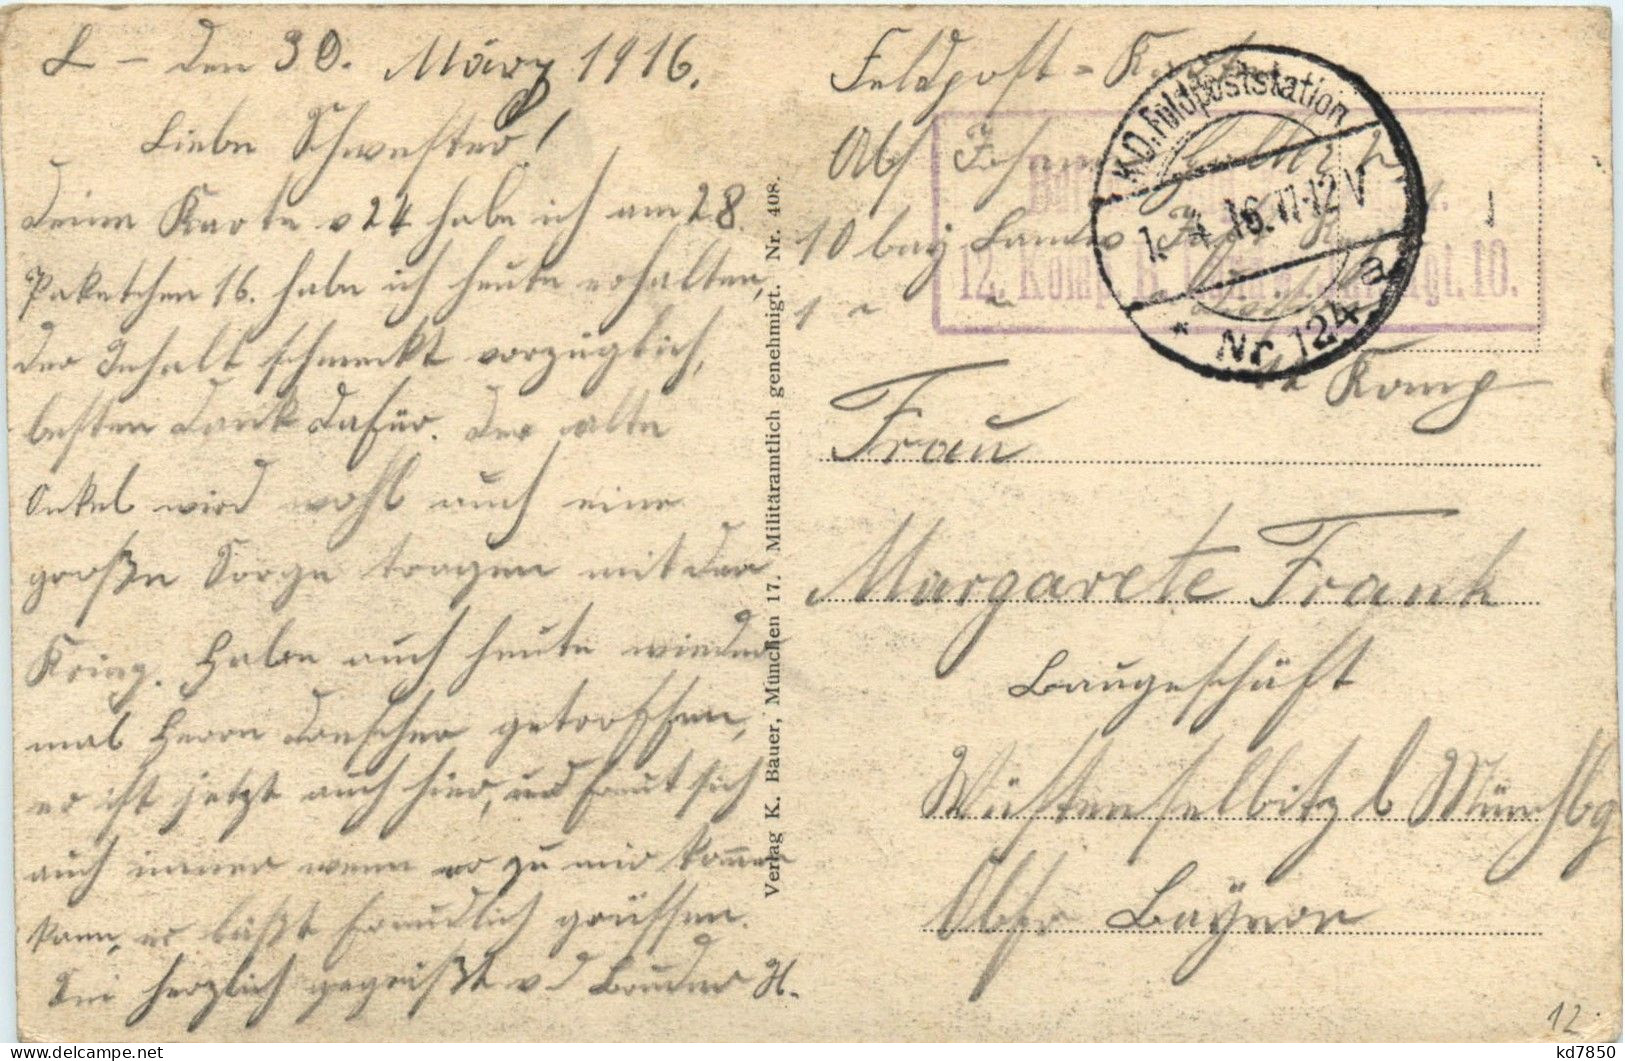 L – den 30. März 1916.
Liebe Schwester!
deine Karte v 24 habe ich am 28.
Paketchen 16. habe ich heute erhalten,
der Inhalt schmeckt vorzüglich,
besten Dank dafür. Der alte
Onkel wird wohl auch eine
große Sorge tragen mit der
Krieg. Habe auch heute wieder
mal Herrn getroffen,
er ist jetzt auch hier, und freut sich
auch immer wenn er zu mir kommen
kann, er läßt freundlich grüssen.
Sei herzlich gegrüßt v d Bruder H.
Verlag K. Bauer, München 17. Militäramtlich genehmigt. Nr. 408.
Feldpost =
Abs
10 bay Landw Inft
12. Komp. B. Rgt. 10.
K.D. Feldpoststation
1. 4. 16. 11-12 V
* Nr. 124 a
12 Komp
Frau
Margarete Frank
Baugeschäft
Wüstenselbitz b Münchbg
Obfr Bayern
12.
kd7850